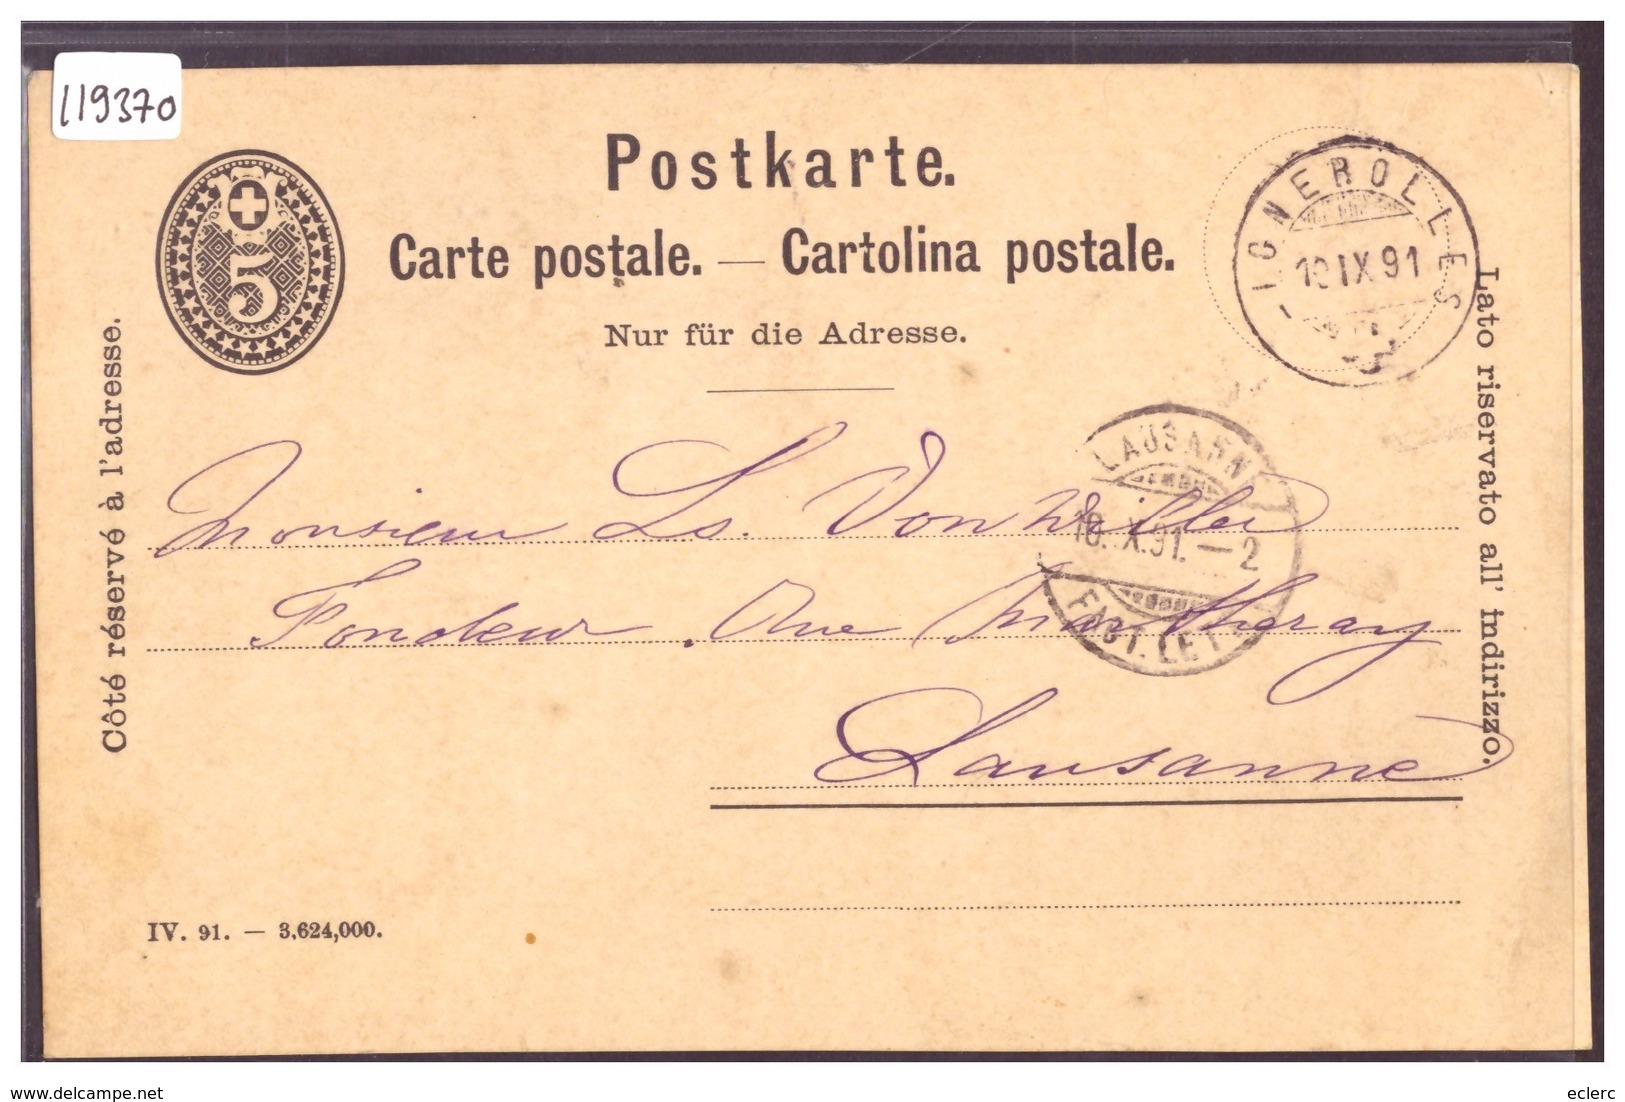 119370
Postkarte.
Carte postale. — Cartolina postale.
Nur für die Adresse.
5
Côté réservé à l'adresse.
Lato riservato all' indirizzo.
LIGNEROLLES
IX.91
LAUSANNE
10.IX.91.—2
FACT. LETT
Monsieur Ls. Vonwiller
Fondeur, Rue Martheray
Lausanne
IV. 91. — 3,624,000.
www.delcampe.net
eclerc